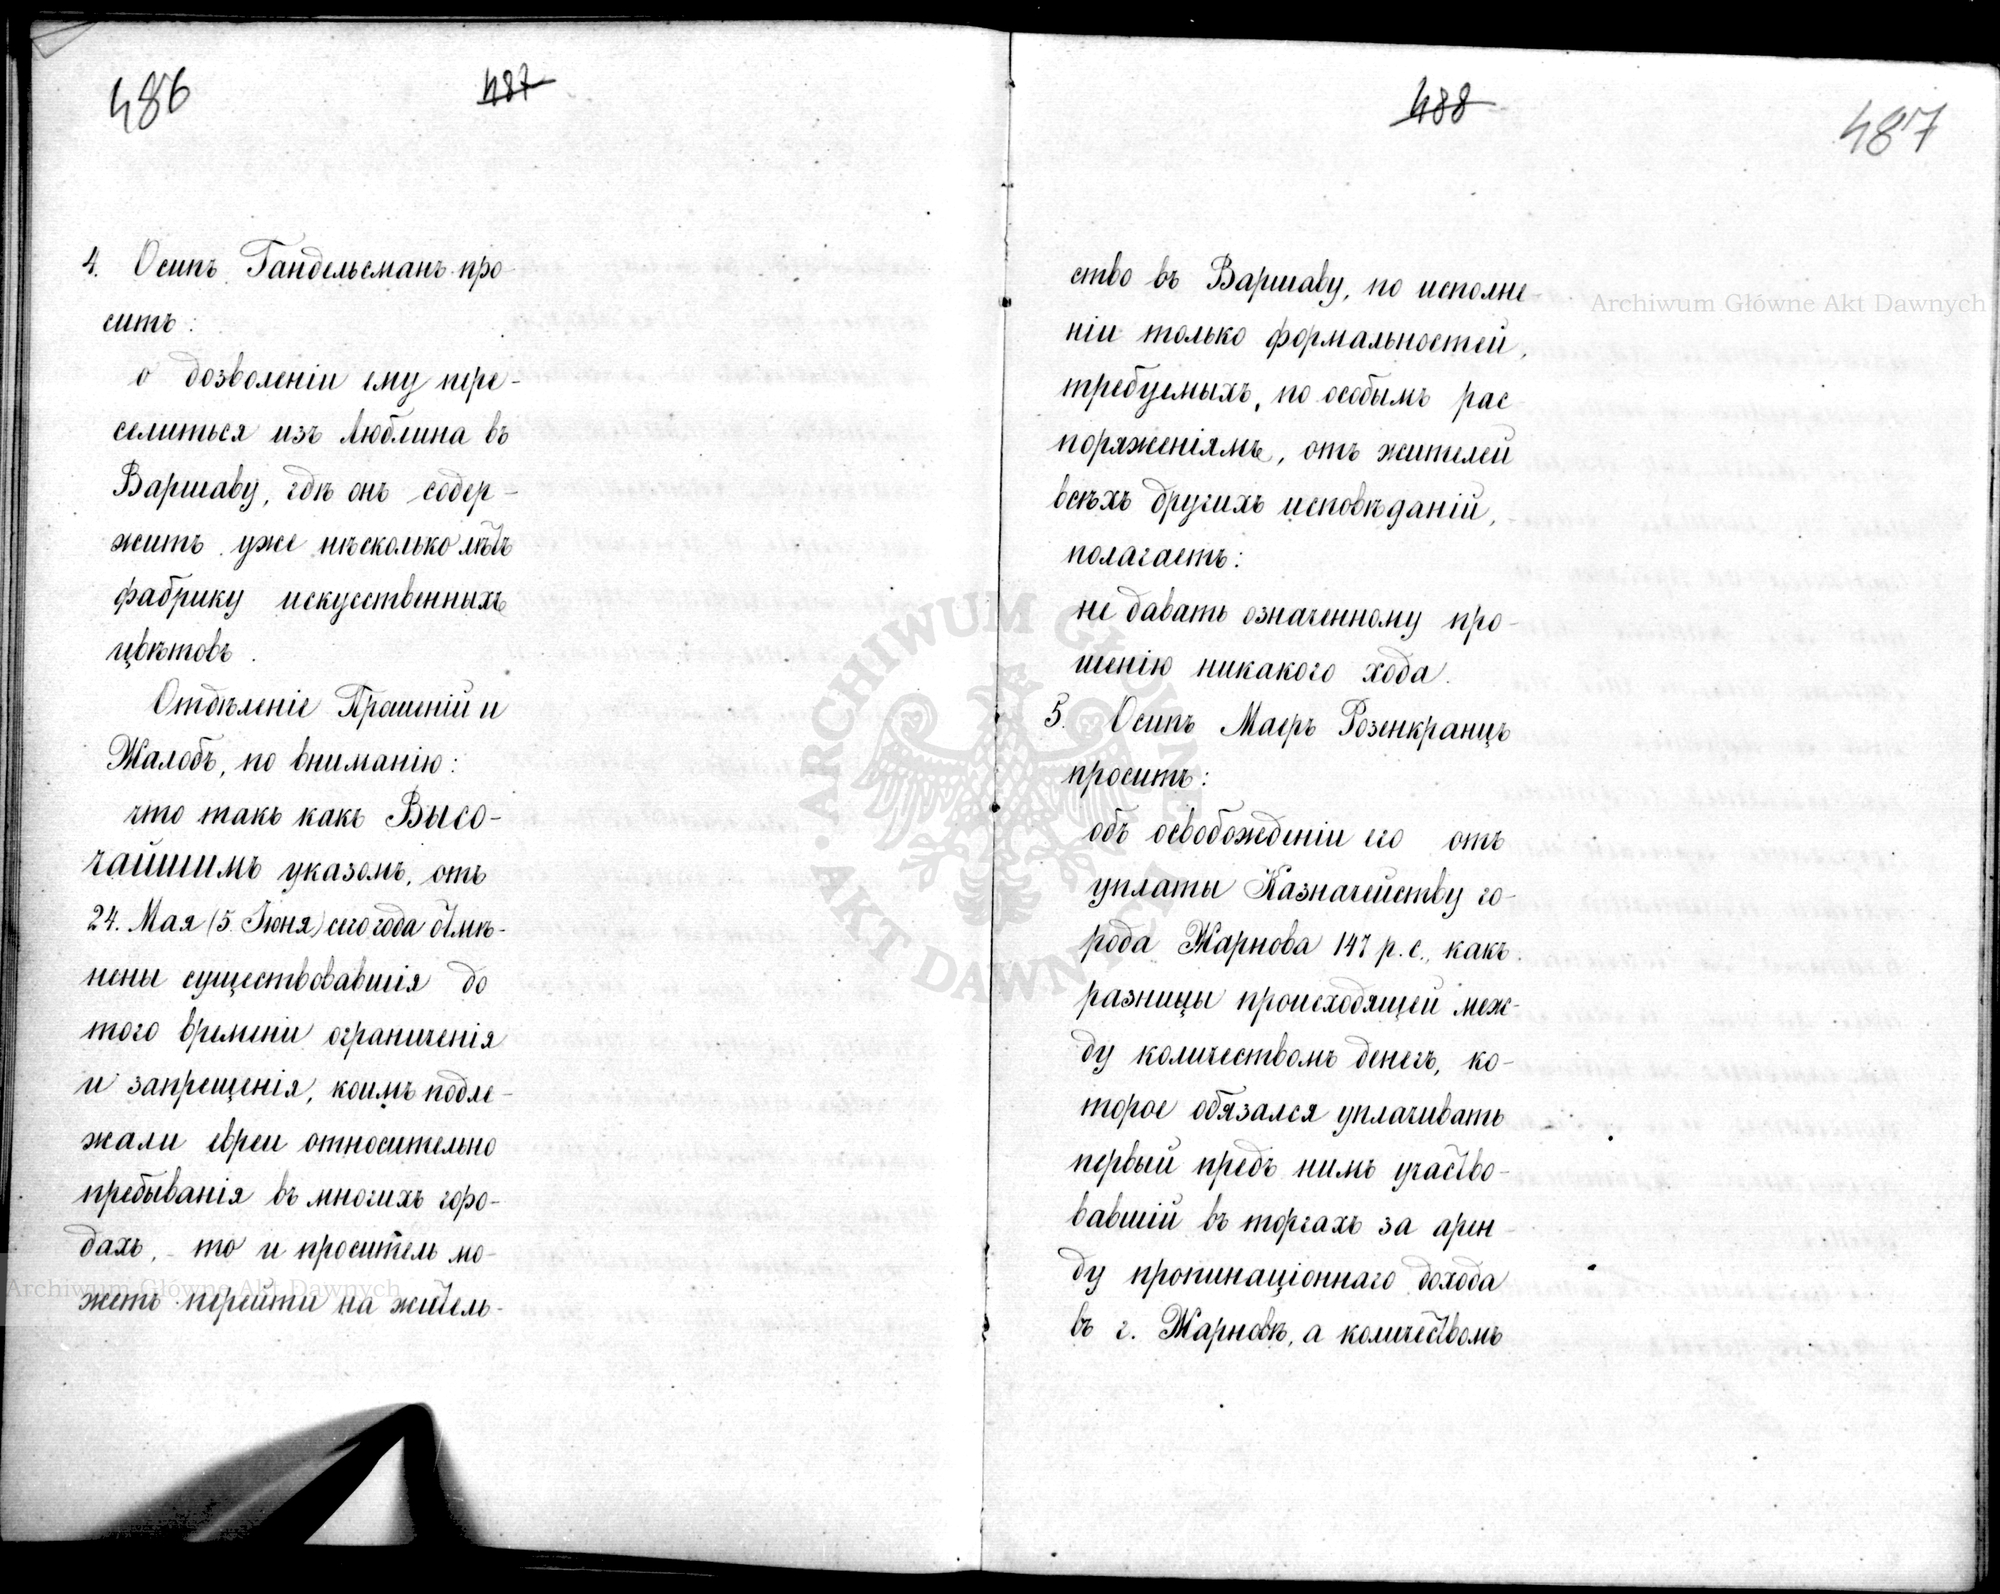 486
487
4. Осипъ Гандельсманъ про-
ситъ:
о дозволеніи ему пере-
селиться изъ Люблина въ
Варшаву, гдѣ онъ содер-
житъ уже нѣсколько лѣтъ
фабрику искусственныхъ
цвѣтовъ.
Отдѣленіе Прошеній и
Жалобъ, по вниманію:
что такъ какъ Высо-
чайшимъ указомъ, отъ
24. Мая (5 Іюня) сего года отмѣ-
нены существовавшія до
того времени ограниченія
и запрещенія, коимъ подле-
жали евреи относительно
пребыванія въ многихъ горо-
дахъ, - то и проситель мо-
жетъ перейти на житель-
488
487
ство въ Варшаву, по исполне-
ніи только формальностей,
требуемыхъ, по особымъ рас
поряженіямъ, отъ жителей
всѣхъ другихъ исповѣданій,
полагаетъ:
не давать означенному про-
шенію никакого хода.
5. Осипъ Маеръ Розенкранцъ
проситъ:
объ освобожденіи его отъ
уплаты Казначейству го-
рода Жарнова 147 р. с., какъ
разницы происходящей меж-
ду количествомъ денегъ, ко-
торое обязался уплачивать
первый предъ нимъ участво-
вавшій въ торгахъ за арен-
ду пропинаціоннаго дохода
въ г. Жарновѣ, а количествомъ
Archiwum Główne Akt Dawnych
Archiwum Główne Akt Dawnych
ARCHIWUM GŁÓWNE AKT DAWNYCH